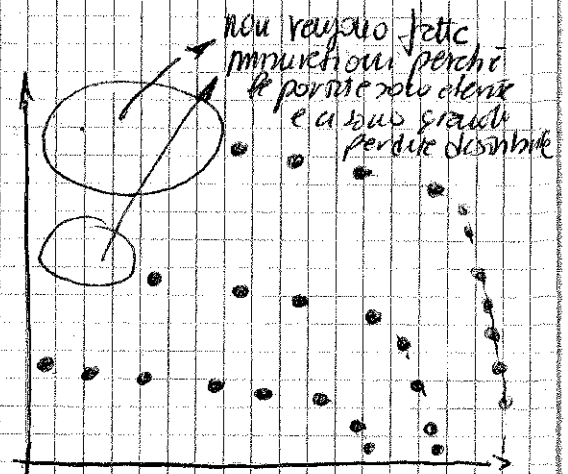 non vengono fatte
misurazioni perché
le portate sono elevate
e ci sono grandi
perdite distribuite